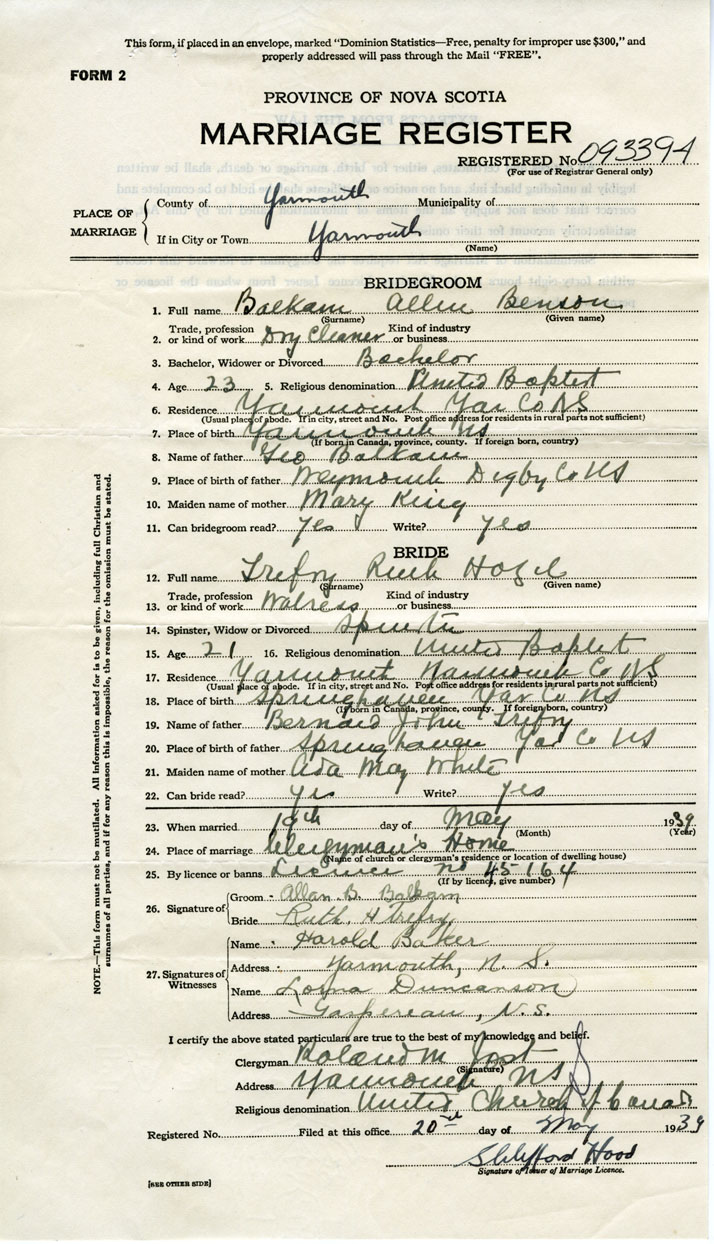 This form, if placed in an envelope, marked “Dominion Statistics—Free, penalty for improper use $300,” and
properly addressed will pass through the Mail “FREE”.
FORM 2
PROVINCE OF NOVA SCOTIA
MARRIAGE REGISTER
REGISTERED No. 093394
(For use of Registrar General only)
PLACE OF MARRIAGE
County of Yarmouth Municipality of
If in City or Town Yarmouth
(Name)
BRIDEGROOM
1. Full name Balkam Allen Benson
(Surname) (Given name)
2. Trade, profession or kind of work Dry Cleaner Kind of industry or business
3. Bachelor, Widower or Divorced Bachelor
4. Age 23 5. Religious denomination United Baptist
6. Residence Yarmouth Yar Co NS
(Usual place of abode. If in city, street and No. Post office address for residents in rural parts not sufficient)
7. Place of birth Yarmouth NS
(If born in Canada, province, county. If foreign born, country)
8. Name of father Geo Balkam
9. Place of birth of father Weymouth Digby Co NS
10. Maiden name of mother Mary King
11. Can bridegroom read? Yes Write? yes
BRIDE
12. Full name Trefry Ruth Hazel
(Surname) (Given name)
13. Trade, profession or kind of work Waitress Kind of industry or business
14. Spinster, Widow or Divorced Spinster
15. Age 21 16. Religious denomination United Baptist
17. Residence Yarmouth Yarmouth Co NS
(Usual place of abode. If in city, street and No. Post office address for residents in rural parts not sufficient)
18. Place of birth Springhaven Yar Co NS
(If born in Canada, province, county. If foreign born, country)
19. Name of father Bernard John Trefry
20. Place of birth of father Springhaven Yar Co NS
21. Maiden name of mother Ada May White
22. Can bride read? yes Write? yes
23. When married 19th day of May 1939
(Month) (Year)
24. Place of marriage Clergyman's Home
(Name of church or clergyman's residence or location of dwelling house)
25. By licence or banns Licence no 45164
(If by licence, give number)
26. Signature of
Groom Allan B. Balkam
Bride Ruth. H Trefry
27. Signatures of Witnesses
Name Harold Baker
Address Yarmouth, N. S.
Name Lorna Duncanson
Address Gaspereau, N.S.
I certify the above stated particulars are true to the best of my knowledge and belief.
Clergyman Roland M Jost
(Signature)
Address Yarmouth NS
Religious denomination United Church of Canada
Registered No. Filed at this office 20 day of May 1939
S Clifford Hood
Signature of Issuer of Marriage Licence.
[SEE OTHER SIDE]
NOTE.—This form must not be mutilated. All information asked for is to be given, including full Christian and
surnames of all parties, and if for any reason this is impossible, the reason for the omission must be stated.